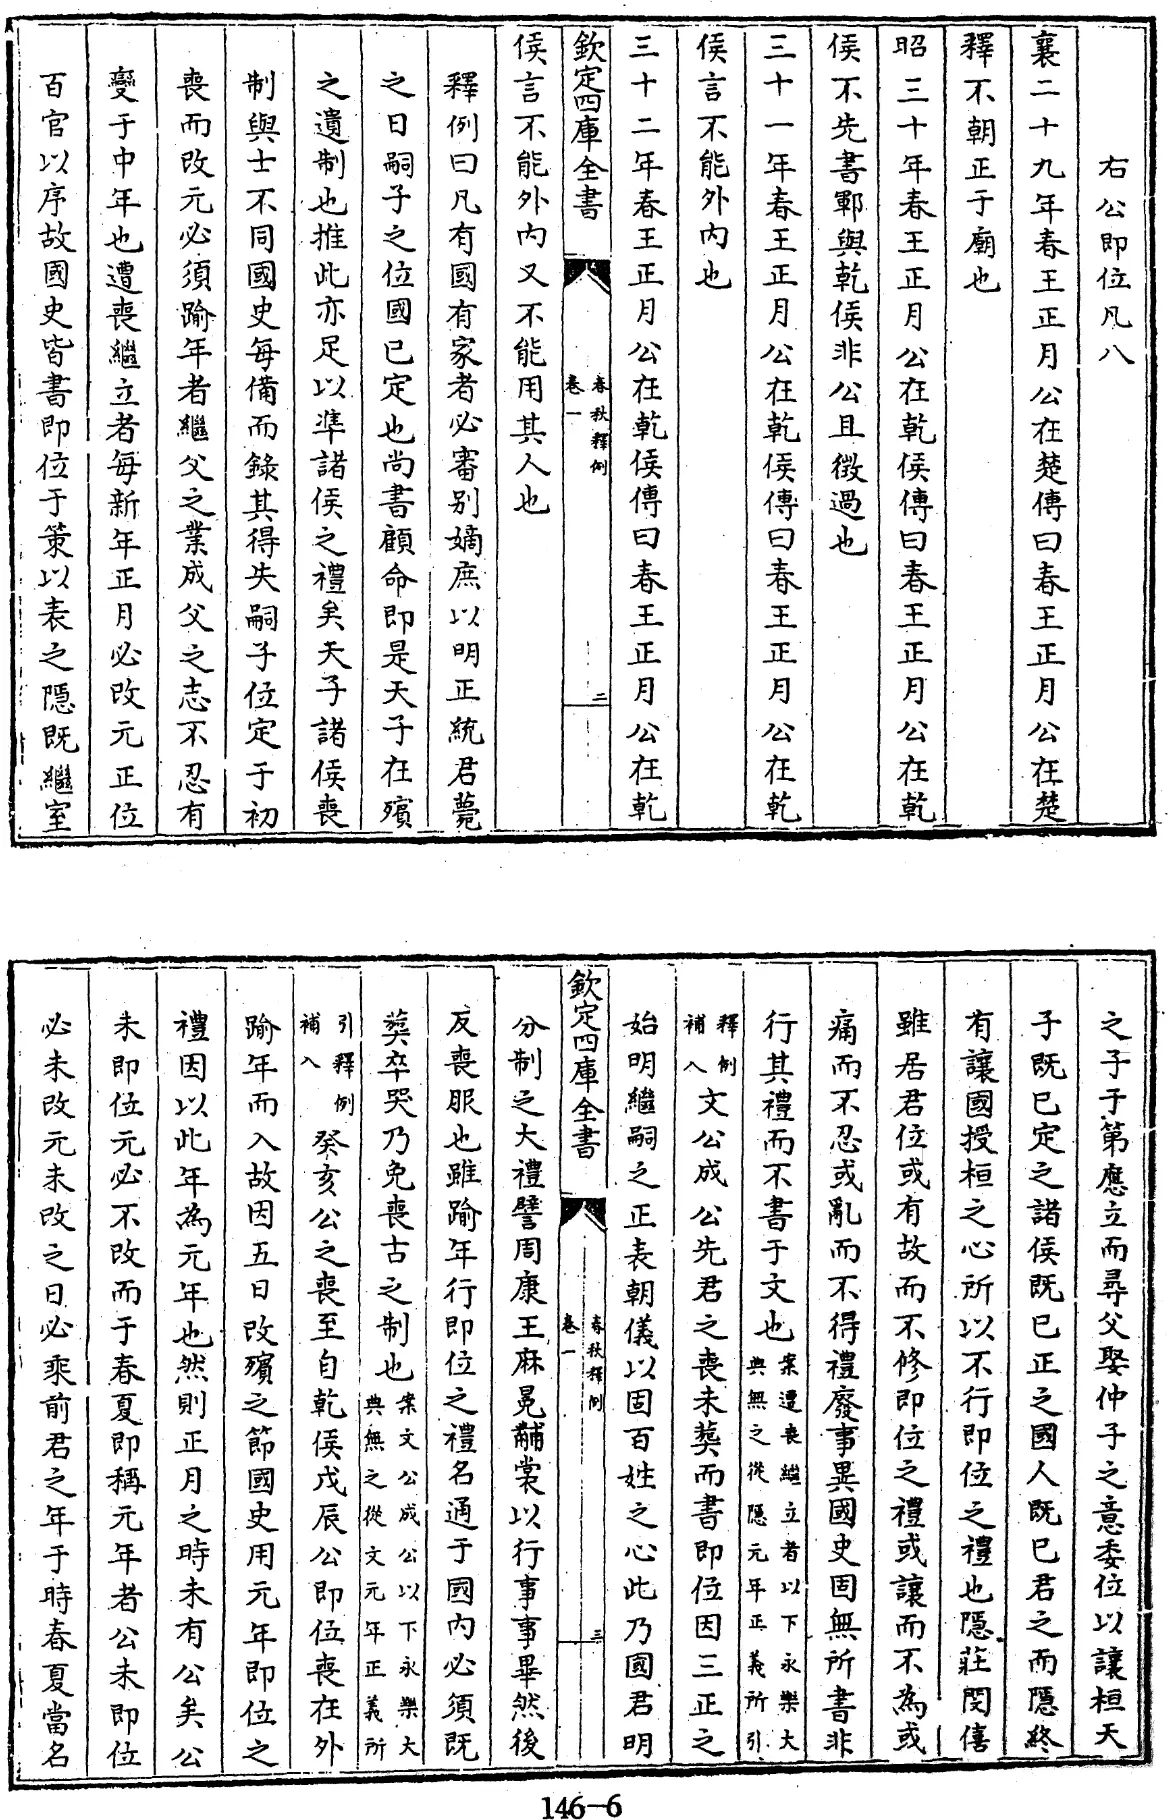 右公即位凡八
襄二十九年春王正月公在楚傳曰春王正月公在楚
釋不朝正于廟也
昭三十年春王正月公在乾侯傳曰春王正月公在乾
侯不先書鄆與乾侯非公且徴過也
三十一年春王正月公在乾侯傳曰春王正月公在乾
侯言不能外内也
三十二年春王正月公在乾侯傳曰春王正月公在乾
欽定四庫全書
春秋釋例
卷一
二
侯言不能外内又不能用其人也
釋例曰凡有國有家者必審别嫡庶以明正統君薨
之日嗣子之位國已定也尚書顧命即是天子在殯
之遺制也推此亦足以準諸侯之禮矣天子諸侯喪
制與士不同國史每備而錄其得失嗣子位定于初
喪而改元必須踰年者繼父之業成父之志不忍有
變于中年也遭喪繼立者每新年正月必改元正位
百官以序故國史皆書即位于策以表之隱既繼室
之子于第應立而尋父娶仲子之意委位以讓桓天
子既已定之諸侯既已正之國人既已君之而隱終
有讓國授桓之心所以不行即位之禮也隱莊閔僖
雖居君位或有故而不修即位之禮或讓而不為或
痛而不忍或亂而不得禮廢事異國史固無所書非
行其禮而不書于文也案遭喪繼立者以下永樂大
典無之從隱元年正義所引
釋例
補入文公成公先君之喪未葬而書即位因三正之
始明繼嗣之正表朝儀以固百姓之心此乃國君明
欽定四庫全書
春秋釋例
卷一
三
分制之大禮譬周康王麻冕黼裳以行事事畢然後
反喪服也雖踰年行即位之禮名通于國内必須既
葬卒哭乃免喪古之制也案文公成公以下永樂大
典無之從文元年正義所
引釋例
補入癸亥公之喪至自乾侯戊辰公即位喪在外
踰年而入故因五日改殯之節國史用元年即位之
禮因以此年為元年也然則正月之時未有公矣公
未即位元必不改而于春夏即稱元年者公未即位
必未改元未改之日必乘前君之年于時春夏當名
146-6